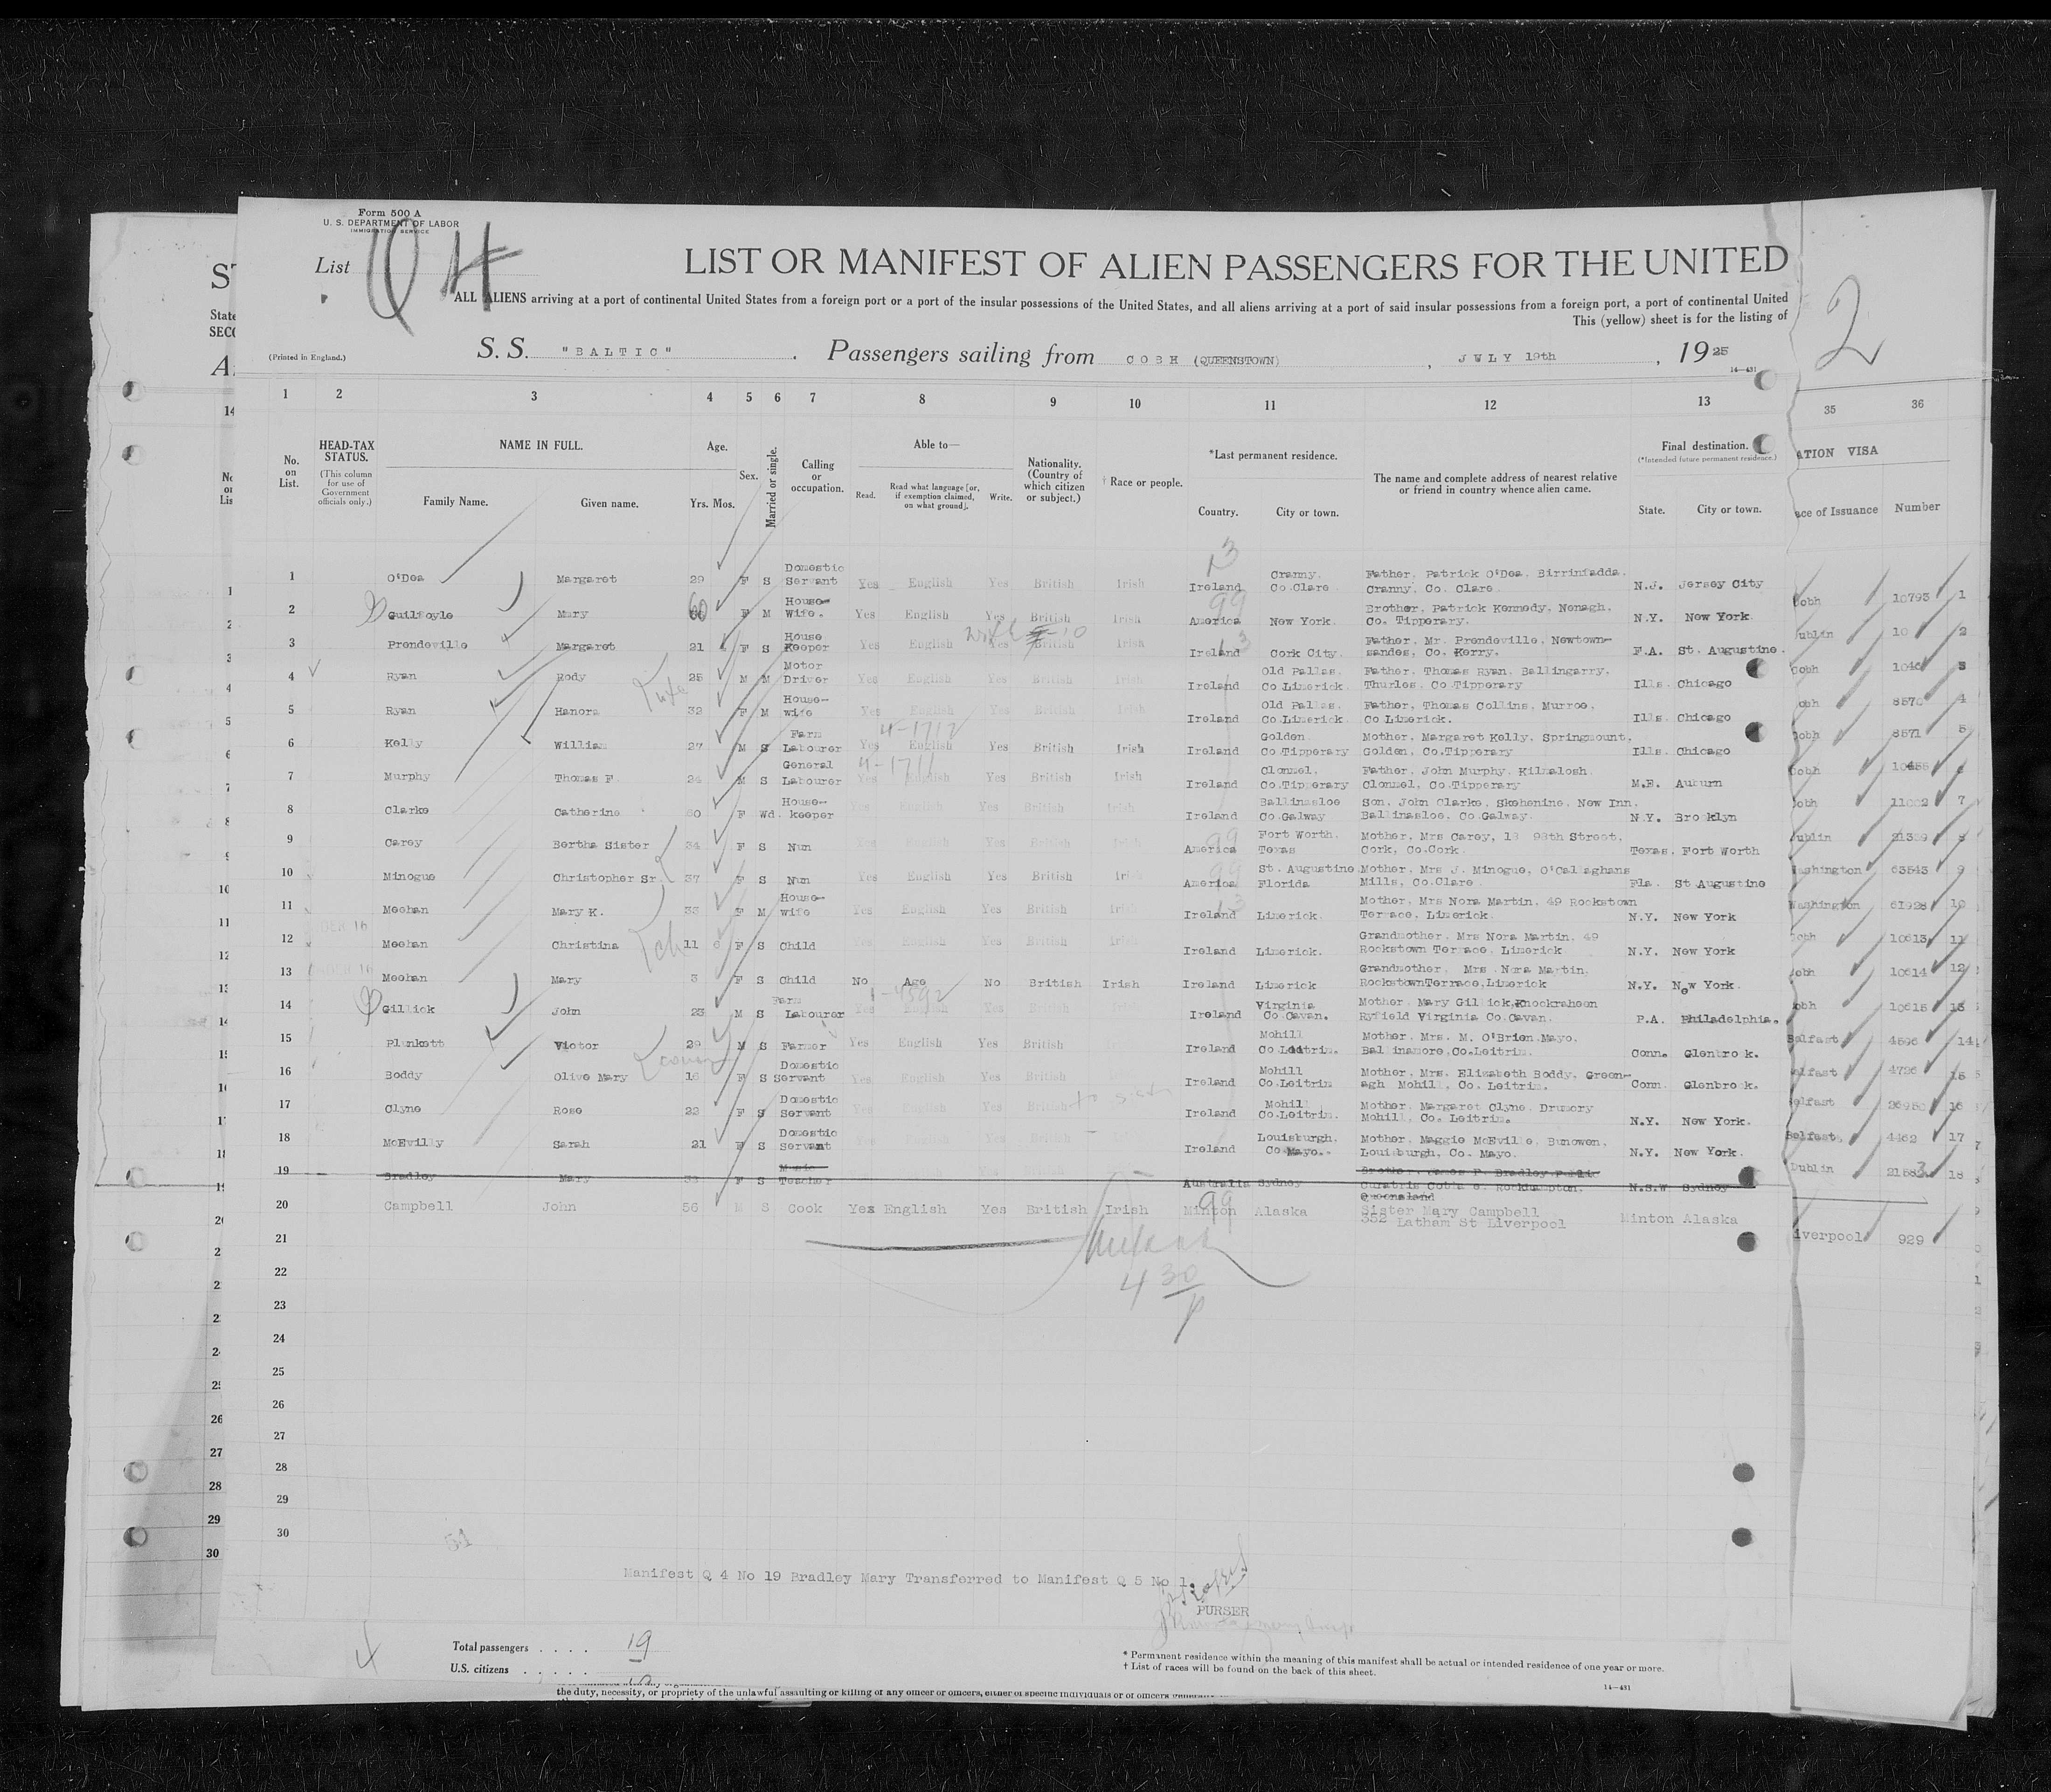 Form 500 A
U. S. DEPARTMENT OF LABOR
IMMIGRATION SERVICE
List Q 4
LIST OR MANIFEST OF ALIEN PASSENGERS FOR THE UNITED
ALL ALIENS arriving at a port of continental United States from a foreign port or a port of the insular possessions of the United States, and all aliens arriving at a port of said insular possessions from a foreign port, a port of continental United
This (yellow) sheet is for the listing of
2
(Printed in England.)
S. S. "BALTIC" , Passengers sailing from COBH (QUEENSTOWN) , JULY 19th , 1925
14—431
1 2 3 4 5 6 7 8 9 10 11 12 13 35 36
No. on List.
HEAD-TAX STATUS.
(This column for use of Government officials only.)
NAME IN FULL.
Family Name. Given name.
Age.
Yrs. Mos.
Sex.
Married or single.
Calling or occupation.
Able to—
Read. Read what language [or, if exemption claimed, on what ground]. Write.
Nationality. (Country of which citizen or subject.)
† Race or people.
*Last permanent residence.
Country. City or town.
The name and complete address of nearest relative or friend in country whence alien came.
Final destination.
(*Intended future permanent residence.)
State. City or town.
ATION VISA
ace of Issuance Number
1 O'Dea Margaret 29 F S Domestic Servant Yes English Yes British Irish Ireland Cranny. Co.Clare Father. Patrick O'Dea. Birrinfadda. Cranny. Co. Clare. N.J. Jersey City obh 10793 1
2 Guilfoyle Mary 60 F M House-wife. Yes English Yes British Irish America New York. Brother. Patrick Kennedy. Nenagh. Co. Tipperary. N.Y. New York. ublin 2
3 Prendeville Margaret 21 F S House Keeper Yes English Yes British Irish Ireland Cork City. Father. Mr. Prendeville, Newtown-sandes, Co. Kerry. F.A. St. Augustine. obh 3
4 Ryan Rody 25 M M Motor Driver Yes English Yes British Irish Ireland Old Pallas. Co.Limerick Father. Thomas Ryan. Ballingarry. Thurles. Co.Tipperary Ills. Chicago obh 8570 4
5 Ryan Hanora 32 F M House-wife Yes English Yes British Irish Ireland Old Pallas. Co.Limerick. Father, Thomas Collins. Murroe. Co Limerick. Ills. Chicago obh 8571 5
6 Kelly William 27 M S Farm Labourer Yes English Yes British Irish Ireland Golden. Co Tipperary Mother, Margaret Kelly, Springmount. Golden, Co.Tipperary Ills. Chicago obh
4-1712
7 Murphy Thomas F. 24 M S General Labourer Yes English Yes British Irish Ireland Clonmel. Co.Tipperary Father. John Murphy. Kilmalosh. Clonmel, Co.Tipperary M.E. Auburn obh 11002 7
4-1711
8 Clarke Catherine 60 F Wd. House-keeper Yes English Yes British Irish Ireland Ballinasloe Co.Galway Son. John Clarke, Skehenine, New Inn. Ballinasloe. Co.Galway. N.Y. Brooklyn ublin 21389 8
9 Carey Bertha Sister 34 F S Nun Yes English Yes British America Fort Worth. Texas Mother, Mrs Carey, 18 98th Street, Cork, Co.Cork. Texas. Fort Worth ashington 63543 9
10 Minogue Christopher Sr. 37 F S Nun Yes English Yes British America St. Augustine Florida Mother, Mrs J. Minogue, O'Callaghans Mills, Co.Clare. Fla. St Augustine Washington 61928 10
11 Meehan Mary K. 33 F M House-wife Yes English Yes British Ireland Limerick. Mother, Mrs Nora Martin. 49 Rockstown Terrace, Limerick. N.Y. New York obh 10613 11
12 Meehan Christina 11 6 F S Child Yes English Yes British Ireland Limerick. Grandmother. Mrs Nora Martin. 49 Rockstown Terrace. Limerick N.Y. New York obh 10614 12
13 Meehan Mary 3 F S Child No Age No British Irish Ireland Limerick Grandmother. Mrs Nora Martin. RockstownTerrace,Limerick N.Y. New York. obh 10615 13
14 Gillick John 23 M S Farm Labourer Yes English Yes British Ireland Virginia Co.Cavan. Mother. Mary Gillick,Knockraheen Ryfield Virginia Co.Cavan. P.A. Philadelphia. Belfast 4596 14
15 Plunkett Victor 29 M S Farmer Yes English Yes British Ireland Mohill Co Leitrim. Mother. Mrs. M. O'Brien.Mayo. Ballinamore,Co.Leitrim. Conn. Glenbrook. elfast 4726 15
16 Boddy Olive Mary 16 F S Domestic Servant Yes English Yes British Ireland Mohill Co.Leitrim Mother, Mrs. Elizabeth Boddy. Green-agh Mohill, Co. Leitrim. Conn. Glenbrook. elfast 26950 16
17 Clyne Rose 22 F S Domestic Servant Yes English Yes British Ireland Mohill Co.Leitrim. Mother. Margaret Clyne. Drumory Mohill, Co. Leitrim. N.Y. New York. Belfast 4462 17
18 McEvilly Sarah 21 F S Domestic Servant Yes English Yes British Ireland Louisburgh. Co Mayo. Mother. Maggie McEville. Bunowen. Louisburgh, Co. Mayo. N.Y. New York. Dublin 18
19 Bradley Mary F S Music Teacher Australia Sydney Brother. James P. Bradley. Public Curatric Cobb's s. Rockhampton. Queensland N.S.W Sydney
20 Campbell John 56 M S Cook Yes English Yes British Irish Minton Alaska Sister Mary Campbell 352 Latham St Liverpool Minton Alaska iverpool 929
21
22
23
24
25
26
27
28
29
30
4 30 P
51
Manifest Q 4 No 19 Bradley Mary Transferred to Manifest Q 5 No 1.
PURSER
Total passengers . . . . 19
U.S. citizens . . . . .
* Permanent residence within the meaning of this manifest shall be actual or intended residence of one year or more.
† List of races will be found on the back of this sheet.
14—431
the duty, necessity, or propriety of the unlawful assaulting or killing of any officer or officers, either of specific individuals or of officers